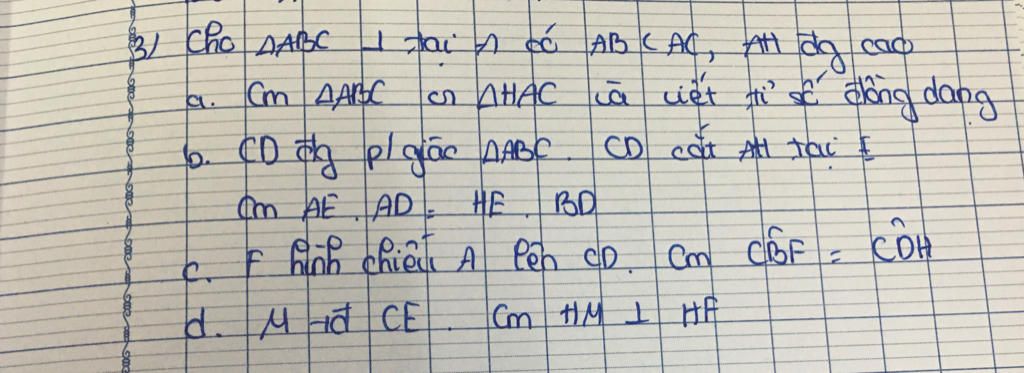 3/ Cho ΔABC ⊥ tại A có AB < AC, AH đg cao
a. Cm ΔABC ∽ ΔHAC và viết tỉ số đồng dạng
b. CD đg p/giác ΔABC. CD cắt AH tại E
Cm AE. AD = HE. BD
c. F hình chiếu A lên CD. Cm CB̂F = CD̂H
d. M tđ CE. Cm HM ⊥ HF